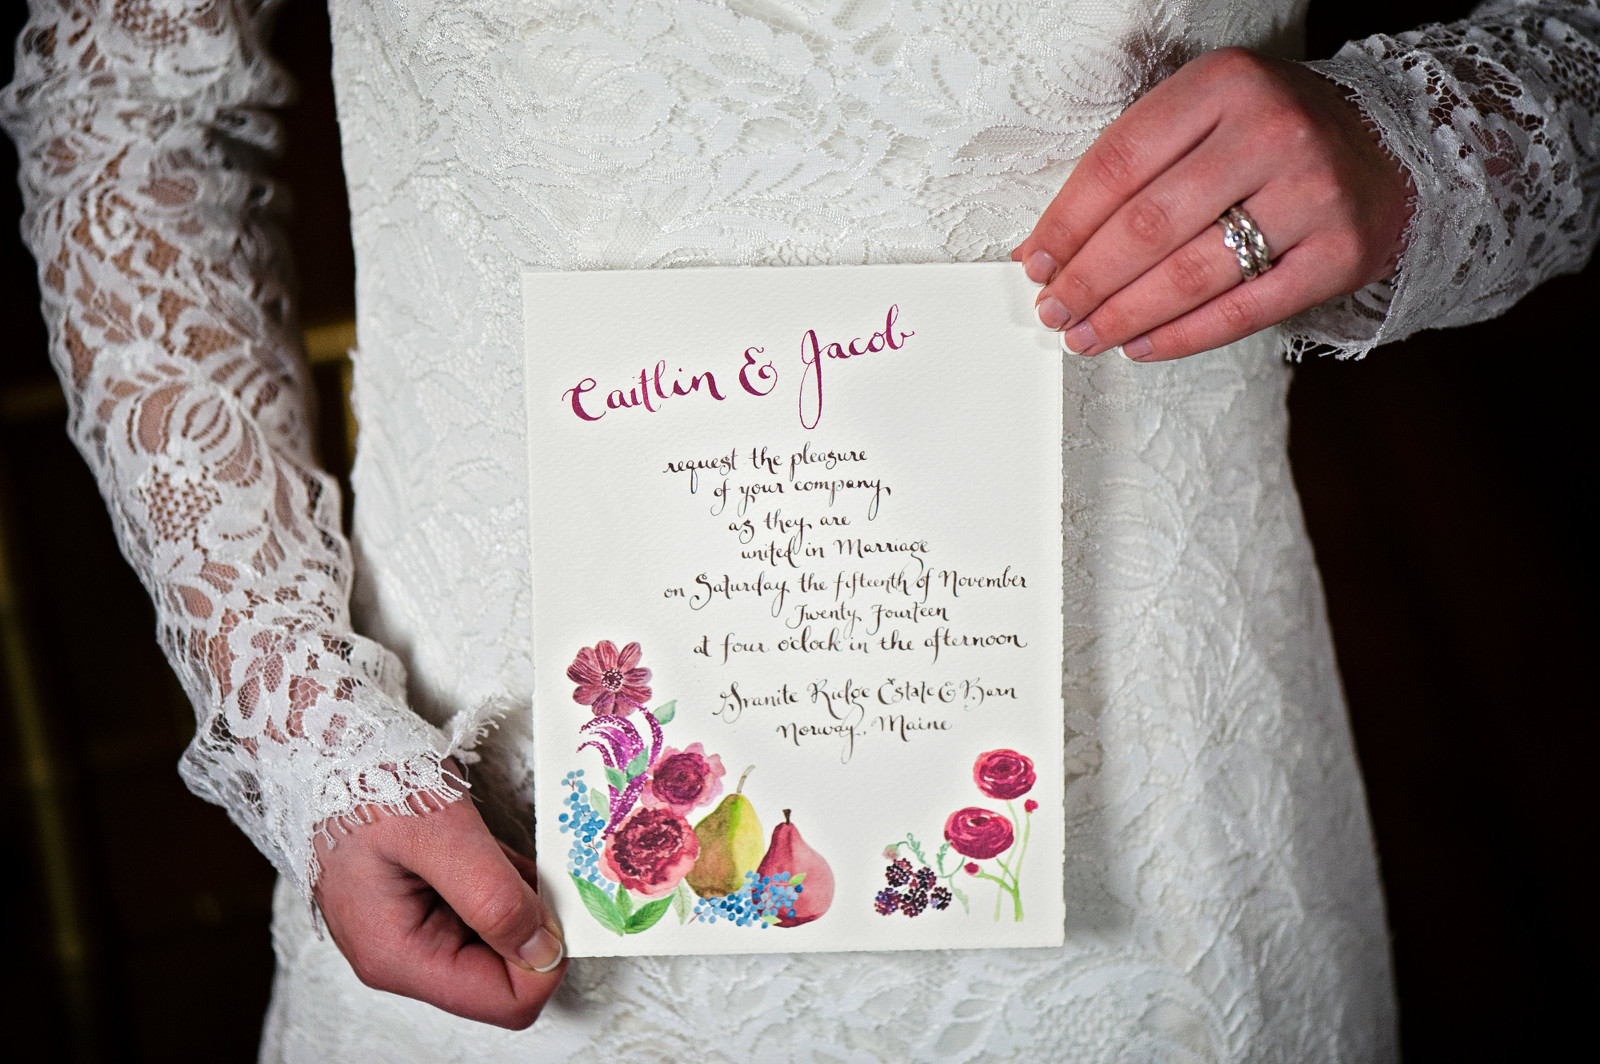 Caitlin & Jacob
request the pleasure
of your company,
as they are
united in Marriage
on Saturday the fifteenth of November
Twenty Fourteen
at four o'clock in the afternoon
Granite Ridge Estate & Barn
Norway, Maine